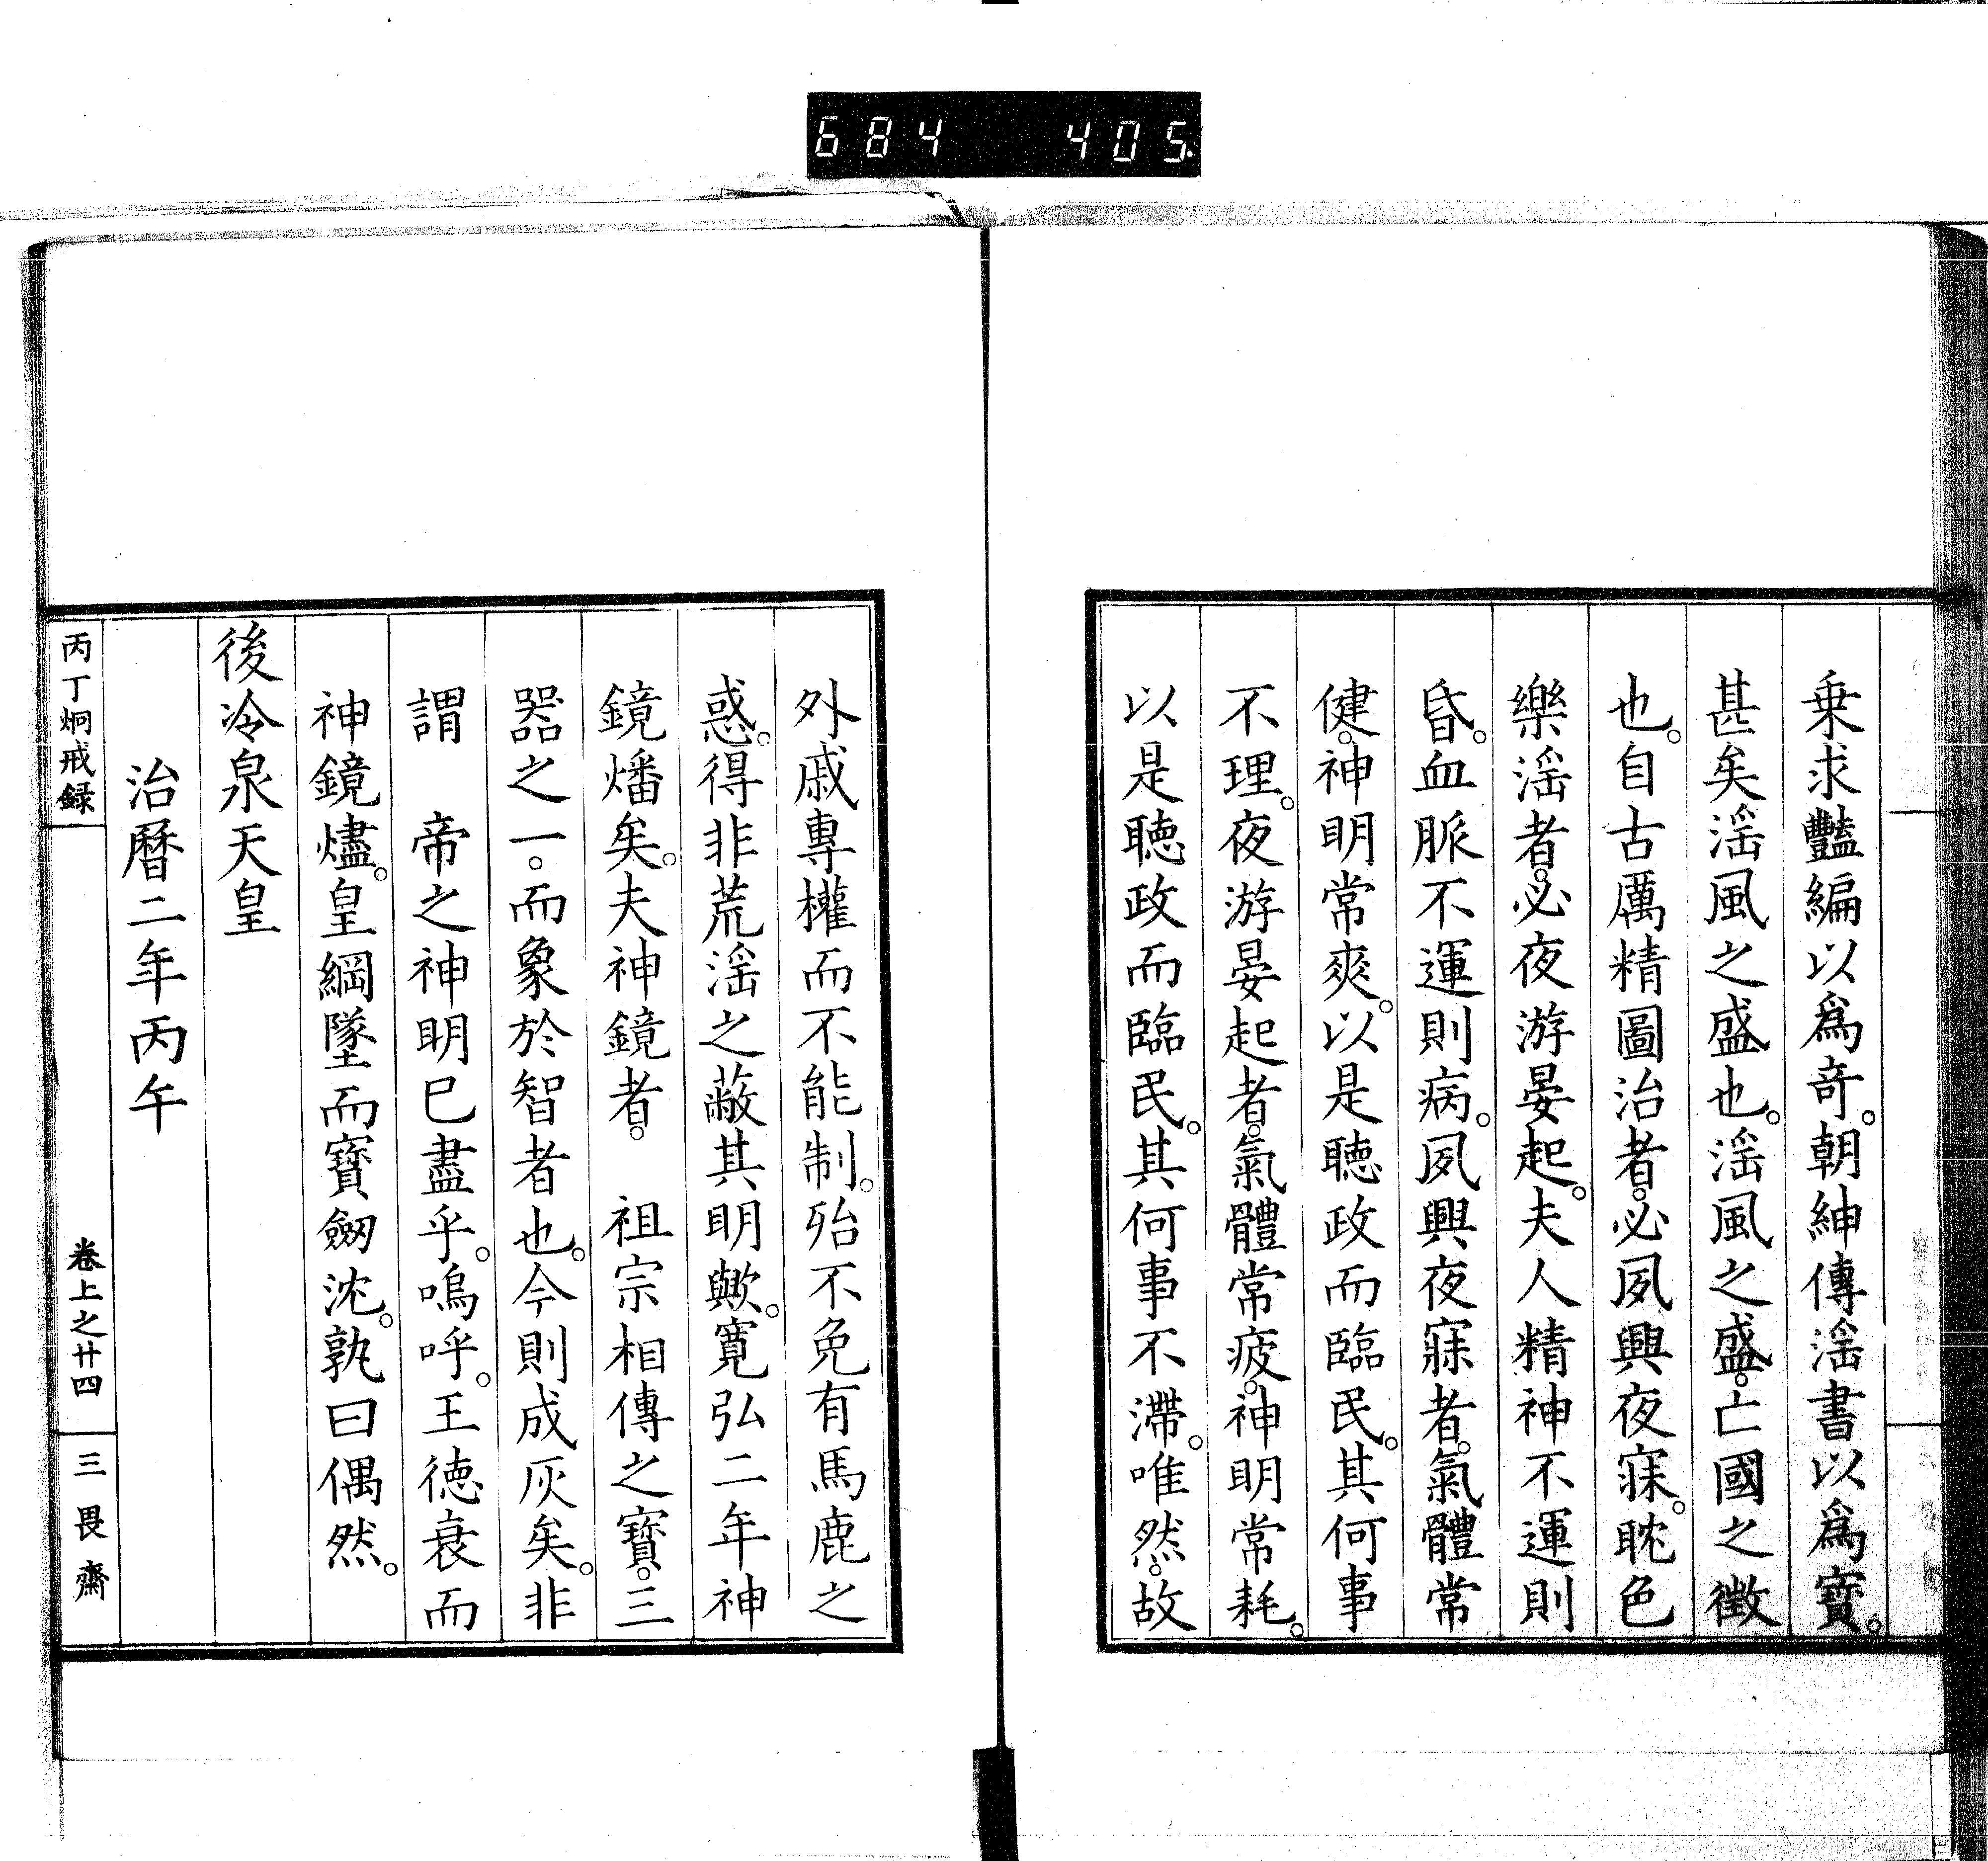 684 405
乗求豔編以爲奇。朝紳傳滛書以爲寳。
甚矣滛風之盛也。滛風之盛。亡國之徴
也。自古厲精圖治者。必夙興夜寐。耽色
樂滛者。必夜游晏起。夫人精神不運則
昏。血脈不運則病。夙興夜寐者。氣體常
健。神明常爽。以是聴政而臨民。其何事
不理。夜游晏起者。氣體常疲。神明常耗。
以是聴政而臨民。其何事不滯。唯然。故
外戚專權而不能制。殆不免有馬鹿之
惑。得非荒滛之蔽其明歟。寛弘二年神
鏡燔矣。夫神鏡者。 祖宗相傳之寳。三
器之一。而象於智者也。今則成灰矣。非
謂 帝之神明已盡乎。嗚呼。王徳衰而
神鏡燼。皇綱墜而寳劔沈。孰曰偶然。
後冷泉天皇
治曆二年丙午
丙丁炯戒録
巻上之廿四
三畏齋